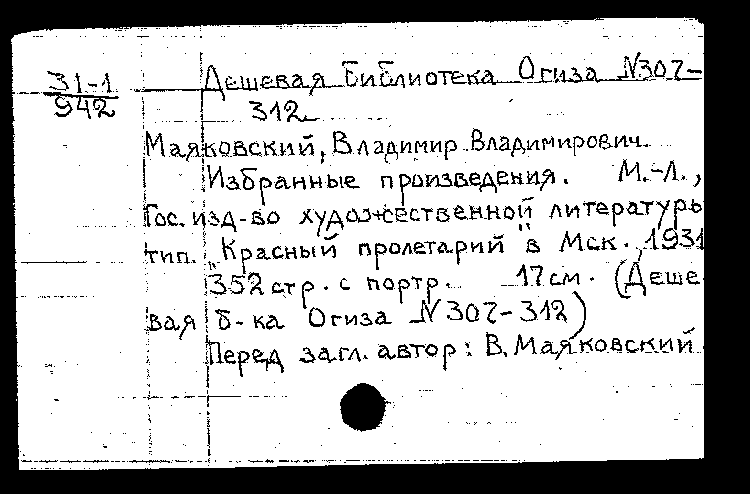 31-1
942
Дешевая библиотека Огиза N307-
312
Маяковский, Владимир Владимирович.
Избранные произведения. М.-Л.,
Гос. изд-во художественной литературы
тип. "Красный пролетарий" в Мск., 1931
352 стр. с портр. 17 см. (Деше
вая б-ка Огиза N 307-312)
Перед загл. автор: В. Маяковский.